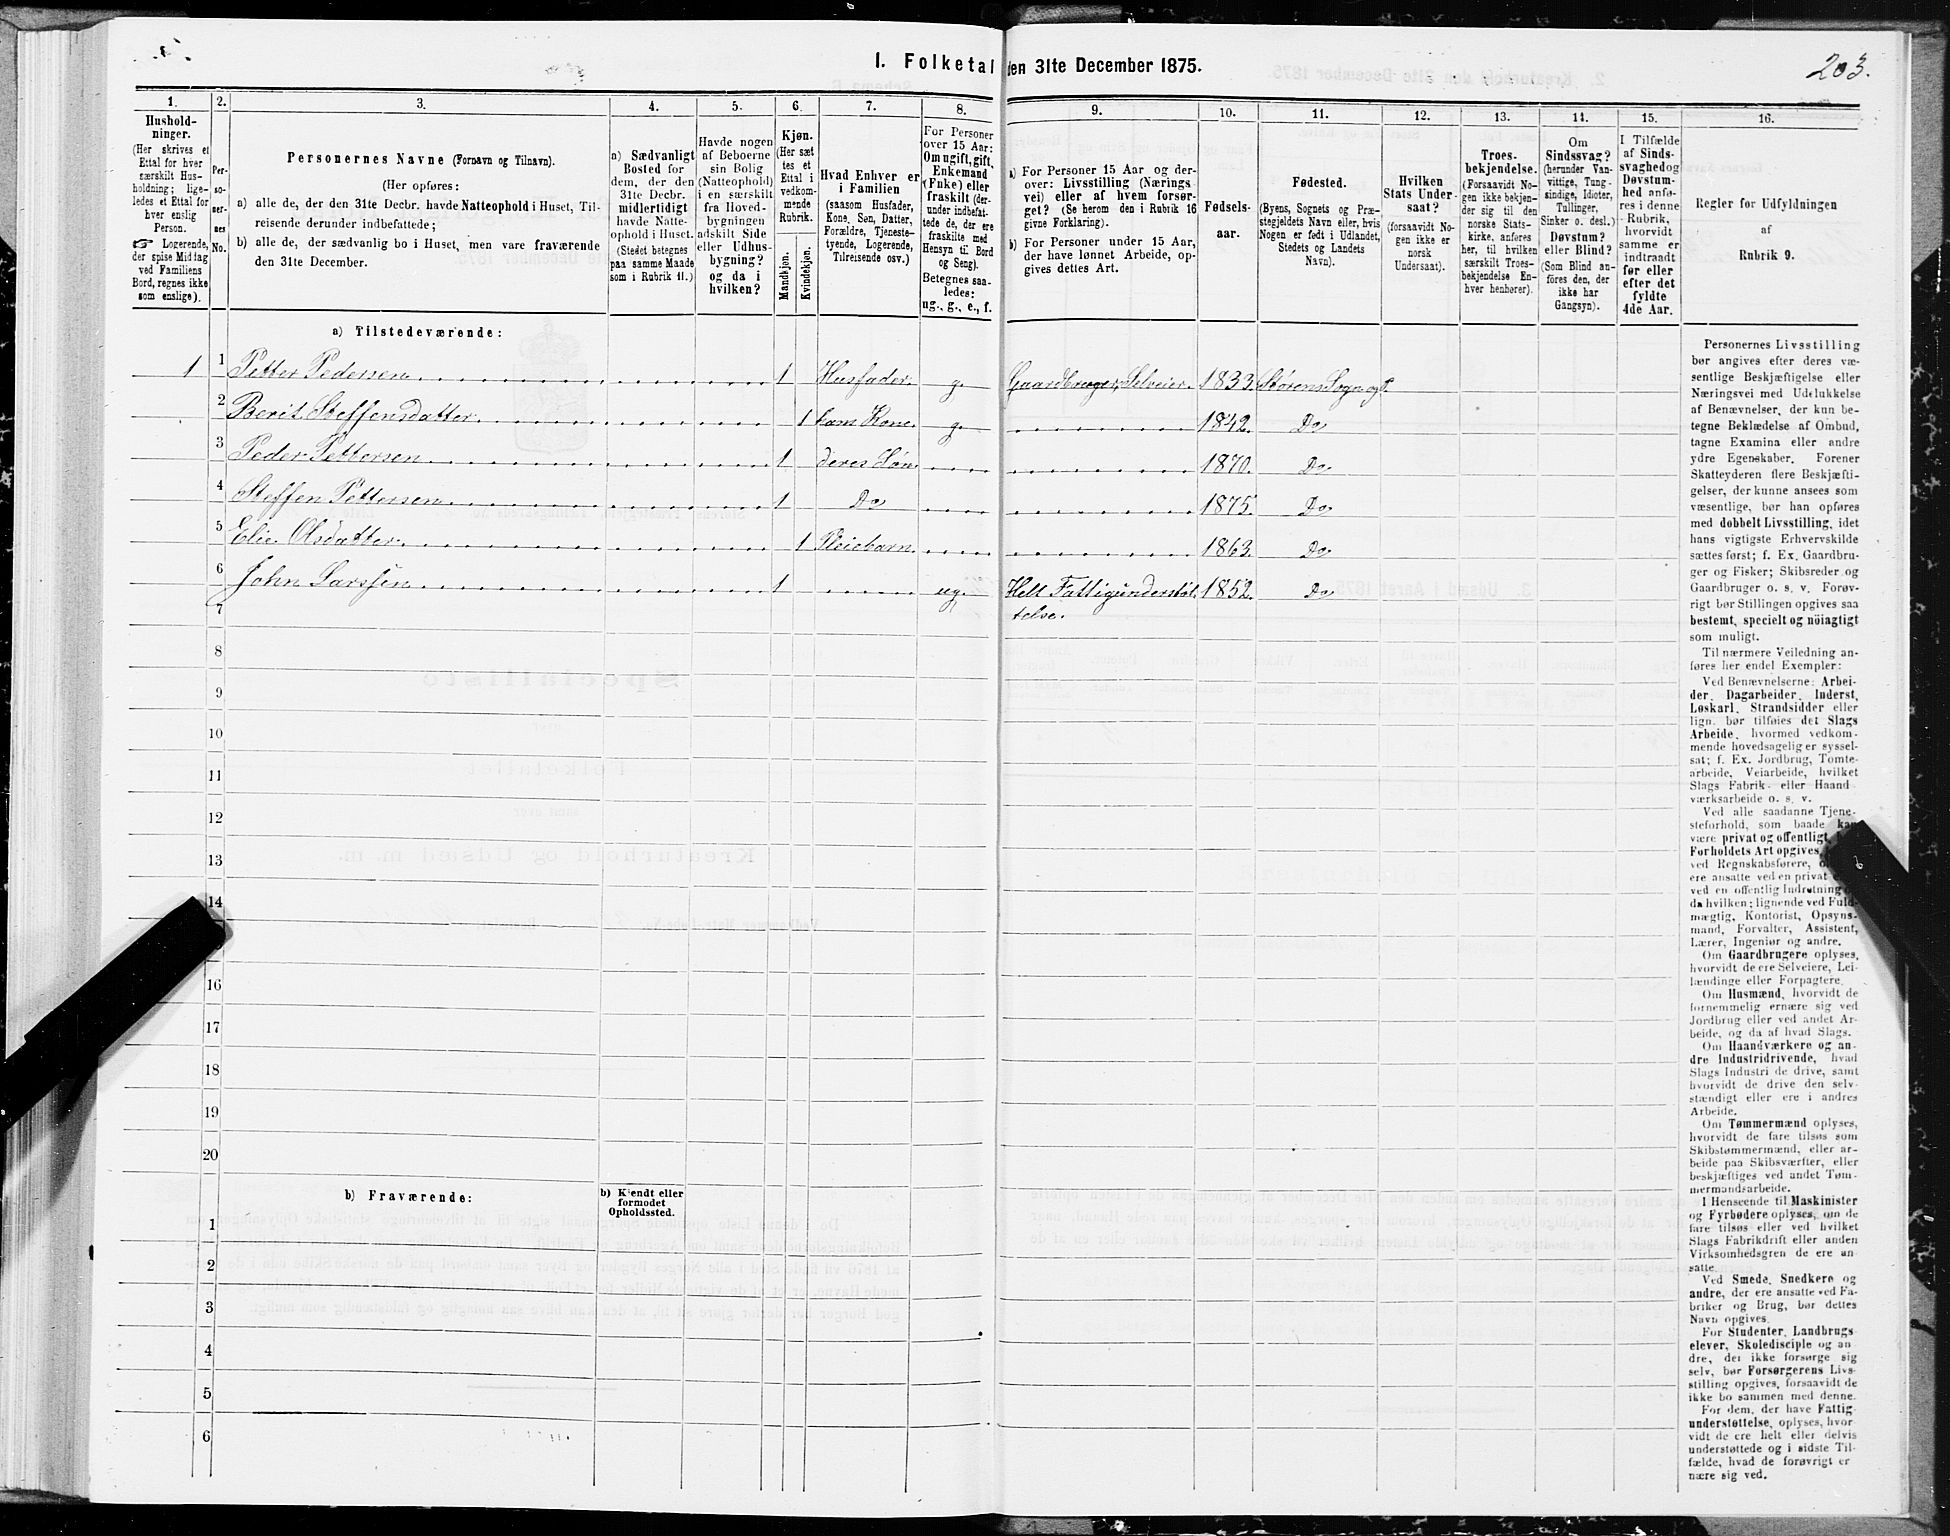 I. Folketal den 31te December 1875.
203.
1.
Hushold-
ninger.
(Her skrives et
Ettal for hver
særskilt Hus-
holdning; lige-
ledes et Ettal for
hver enslig
Person.
☞ Logerende,
der spise Middag
ved Familiens
Bord, regnes ikke
som enslige).
2.
Per-
so-
ner-
nes
No.
3.
Personernes Navne (Fornavn og Tilnavn).
(Her opføres:
a) alle de, der den 31te Decbr. havde Natteophold i Huset, Til-
reisende derunder indbefattede;
b) alle de, der sædvanlig bo i Huset, men vare fraværende
den 31te December.
4.
a) Sædvanligt
Bosted for
dem, der den
31te Decbr.
midlertidigt
havde Natte-
ophold i Huset.
(Stedet betegnes
paa samme Maade
som i Rubrik 11.)
5.
Havde nogen
af Beboerne
sin Bolig
(Natteophold)
i en særskilt
fra Hoved-
bygningen
adskilt Side
eller Udhus-
bygning?
og da i
hvilken?
6.
Kjøn.
(Her sæt-
tes et
Ettal i
vedkom-
mende
Rubrik.
Mandkjøn.
Kvindekjøn.
7.
Hvad Enhver er
i Familien
(saasom Husfader,
Kone, Søn, Datter,
Forældre, Tjeneste-
tyende, Logerende,
Tilreisende osv.)
8.
For Personer
over 15 Aar:
Om ugift, gift,
Enkemand
(Enke) eller
fraskilt (der-
under indbefat-
tede de, der ere
fraskilte med
Hensyn til Bord
og Seng).
Betegnes saa-
ledes:
ug., g., e., f.
9.
a) For Personer 15 Aar og der-
over: Livsstilling (Nærings-
vei) eller af hvem forsør-
get? (Se herom den i Rubrik 16
givne Forklaring).
b) For Personer under 15 Aar,
der have lønnet Arbeide, op-
gives dettes Art.
10.
Fødsels-
aar.
11.
Fødested.
(Byens, Sognets og Præ-
stegjeldets Navn eller, hvis
Nogen er født i Udlandet,
Stedets og Landets
Navn).
12.
Hvilken
Stats Under-
saat?
(forsaavidt No-
gen ikke er
norsk
Undersaat).
13.
Troes-
bekjendelse.
(Forsaavidt No-
gen ikke bekjen-
der sig til den
norske Stats-
kirke, anføres
her, til hvilken
særskilt Troes-
bekjendelse En-
hver henhører).
14.
Om
Sindssvag?
(herunder Van-
vittige, Tung-
sindige, Idioter,
Tullinger,
Sinker o. desl.)
Døvstum?
eller Blind?
(Som Blind an-
føres den, der
ikke har
Gangsyn).
15.
I Tilfælde
af Sinds-
svaghed og
Døvstum-
hed anfø-
res i denne
Rubrik,
hvorvidt
samme er
indtraadt
før eller
efter det
fyldte
4de Aar.
16.
Regler før Udfyldningen
af
Rubrik 9.
a) Tilstedeværende:
1 1 Petter Pedersen 1 Husfader g. Gaardbruger, Selveier. 1833. Størens Sogn og P.
2 Berit Steffensdatter 1 hans Kone g. 1842. Do
3 Peder Pettersen 1 deres Søn 1870. Do
4 Steffen Pettersen 1 Do 1875. Do
5 Elie Olsdatter 1 Pleiebarn 1863. Do
6 John Larssen 1 ug. Helt Fattigunderstøt- 1852. Do
7 telse.
8
9
10
11
12
13
14
16
17
18
19
20
b) Fraværende:
b) Kjendt eller
formodet
Opholdssted.
1
2
3
4
5
6
Personernes Livsstilling
bør angives efter deres væ-
sentlige Beskjæftigelse eller
Næringsvei med Udelukkelse
af Benævnelser, der kun be-
tegne Beklædelse af Ombud,
tagne Examina eller andre
ydre Egenskaber. Forener
Skatteyderen flere Beskjæfti-
gelser, der kunne ansees som
væsentlige, bør han opføres
med dobbelt Livsstilling, idet
hans vigtigste Erhvervskilde
sættes først; f. Ex. Gaardbru-
ger og Fisker; Skibsreder og
Gaardbruger o. s. v. Forøv-
rigt bør Stillingen opgives saa
bestemt, specielt og nöiagtigt
som muligt.
Til nærmere Veiledning an-
føres her endel Exempler:
Ved Benævnelserne: Arbei-
der, Dagarbeider, Inderst,
Løskarl, Strandsidder eller
lign. bør tilføies det Slags
Arbeide, hvormed vedkom-
mende hovedsagelig er syssel-
sat; f. Ex. Jordbrug, Tomte-
arbeide, Veiarbeide, hvilket
Slags Fabrik- eller Haand-
værksarbeide o. s. v.
Ved alle saadanne Tjene-
steforhold, som baade kan
være privat og offentligt,
Forholdets Art opgives,
ved Regnskabsførere,
ere ansatte ved en privat
ved en offentlig Indretning
da hvilken; lignende ved Fuld-
mægtig, Kontorist, Opsyns-
mand, Forvalter, Assistent,
Lærer, Ingeniør og andre.
Om Gaardbrugere oplyses,
hvorvidt de ere Selveiere, Lei-
lændinge eller Forpagtere.
Om Husmænd, hvorvidt de
fornemmelig ernære sig ved
Jordbrug eller ved andet Ar-
beide, og da af hvad Slags.
Om Haandværkere og an-
dre Industridrivende, hvad
Slags Industri de drive, samt
hvorvidt de drive den selv-
stændigt eller ere i andres
Arbeide.
Om Tømmermænd oplyses,
hvorvidt de fare tilsøs som
Skibstømmermænd, eller ar-
beide paa Skibsværfter, eller
beskjæftiges ved andet Tøm-
mermandsarbeide.
I Henseende til Maskinister
og Fyrbødere oplyses, om de
fare tilsøs eller ved hvilket
Slags Fabrikdrift eller anden
Virksomhedsgren de ere an-
satte.
Ved Smede, Snedkere og
andre, der ere ansatte ved Fa-
briker og Brug, bør dettes
Navn opgives.
For Studenter, Landbrugs-
elever, Skoledisciple og an-
dre, der ikke forsørge sig
selv, bør Forsørgerens Livs-
stilling opgives, forsaavidt de
ikke bo sammen med denne.
For dem, der have Fattig-
understøttelse, oplyses, hvor-
vidt de ere helt eller delvis
understøttede og i sidste Til-
fælde, hvad de forøvrigt er-
nære sig ved.